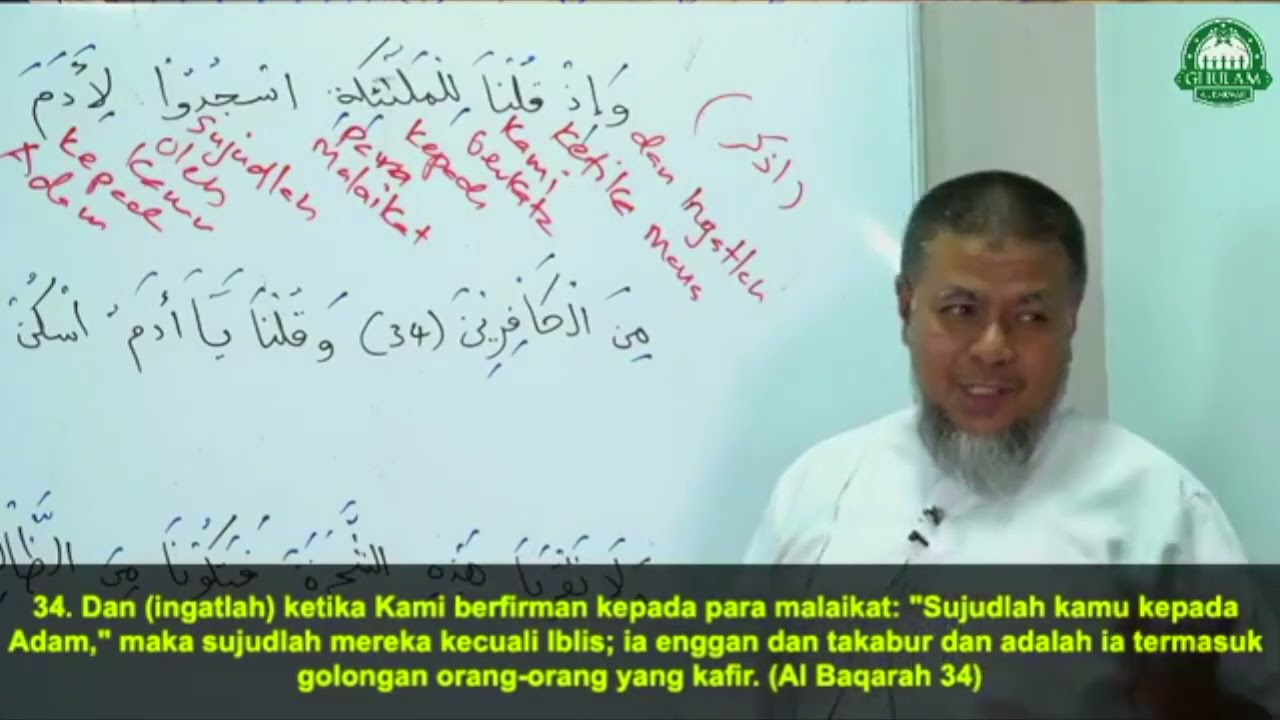 وَإِذْ قُلْنَا لِلْمَلَئِكَةِ اسْجُدُوْا لِأَدَمَ
(اذكر)
dan Ingatlah
ketika
Kami
berkata
kepada
para
malaikat
Sujudlah
oleh
kamu
kepada
Adam
مِنَ الْكَافِرِيْنَ (34) وَقُلْنَا يَا أَدَمُ اسْكُنْ
وَلَا تَقْرَبَا هَذِهِ الشَّجَرَةَ فَتَكُوْنَا مِنَ
GHULAM
34. Dan (ingatlah) ketika Kami berfirman kepada para malaikat: "Sujudlah kamu kepada
Adam," maka sujudlah mereka kecuali Iblis; ia enggan dan takabur dan adalah ia termasuk
golongan orang-orang yang kafir. (Al Baqarah 34)